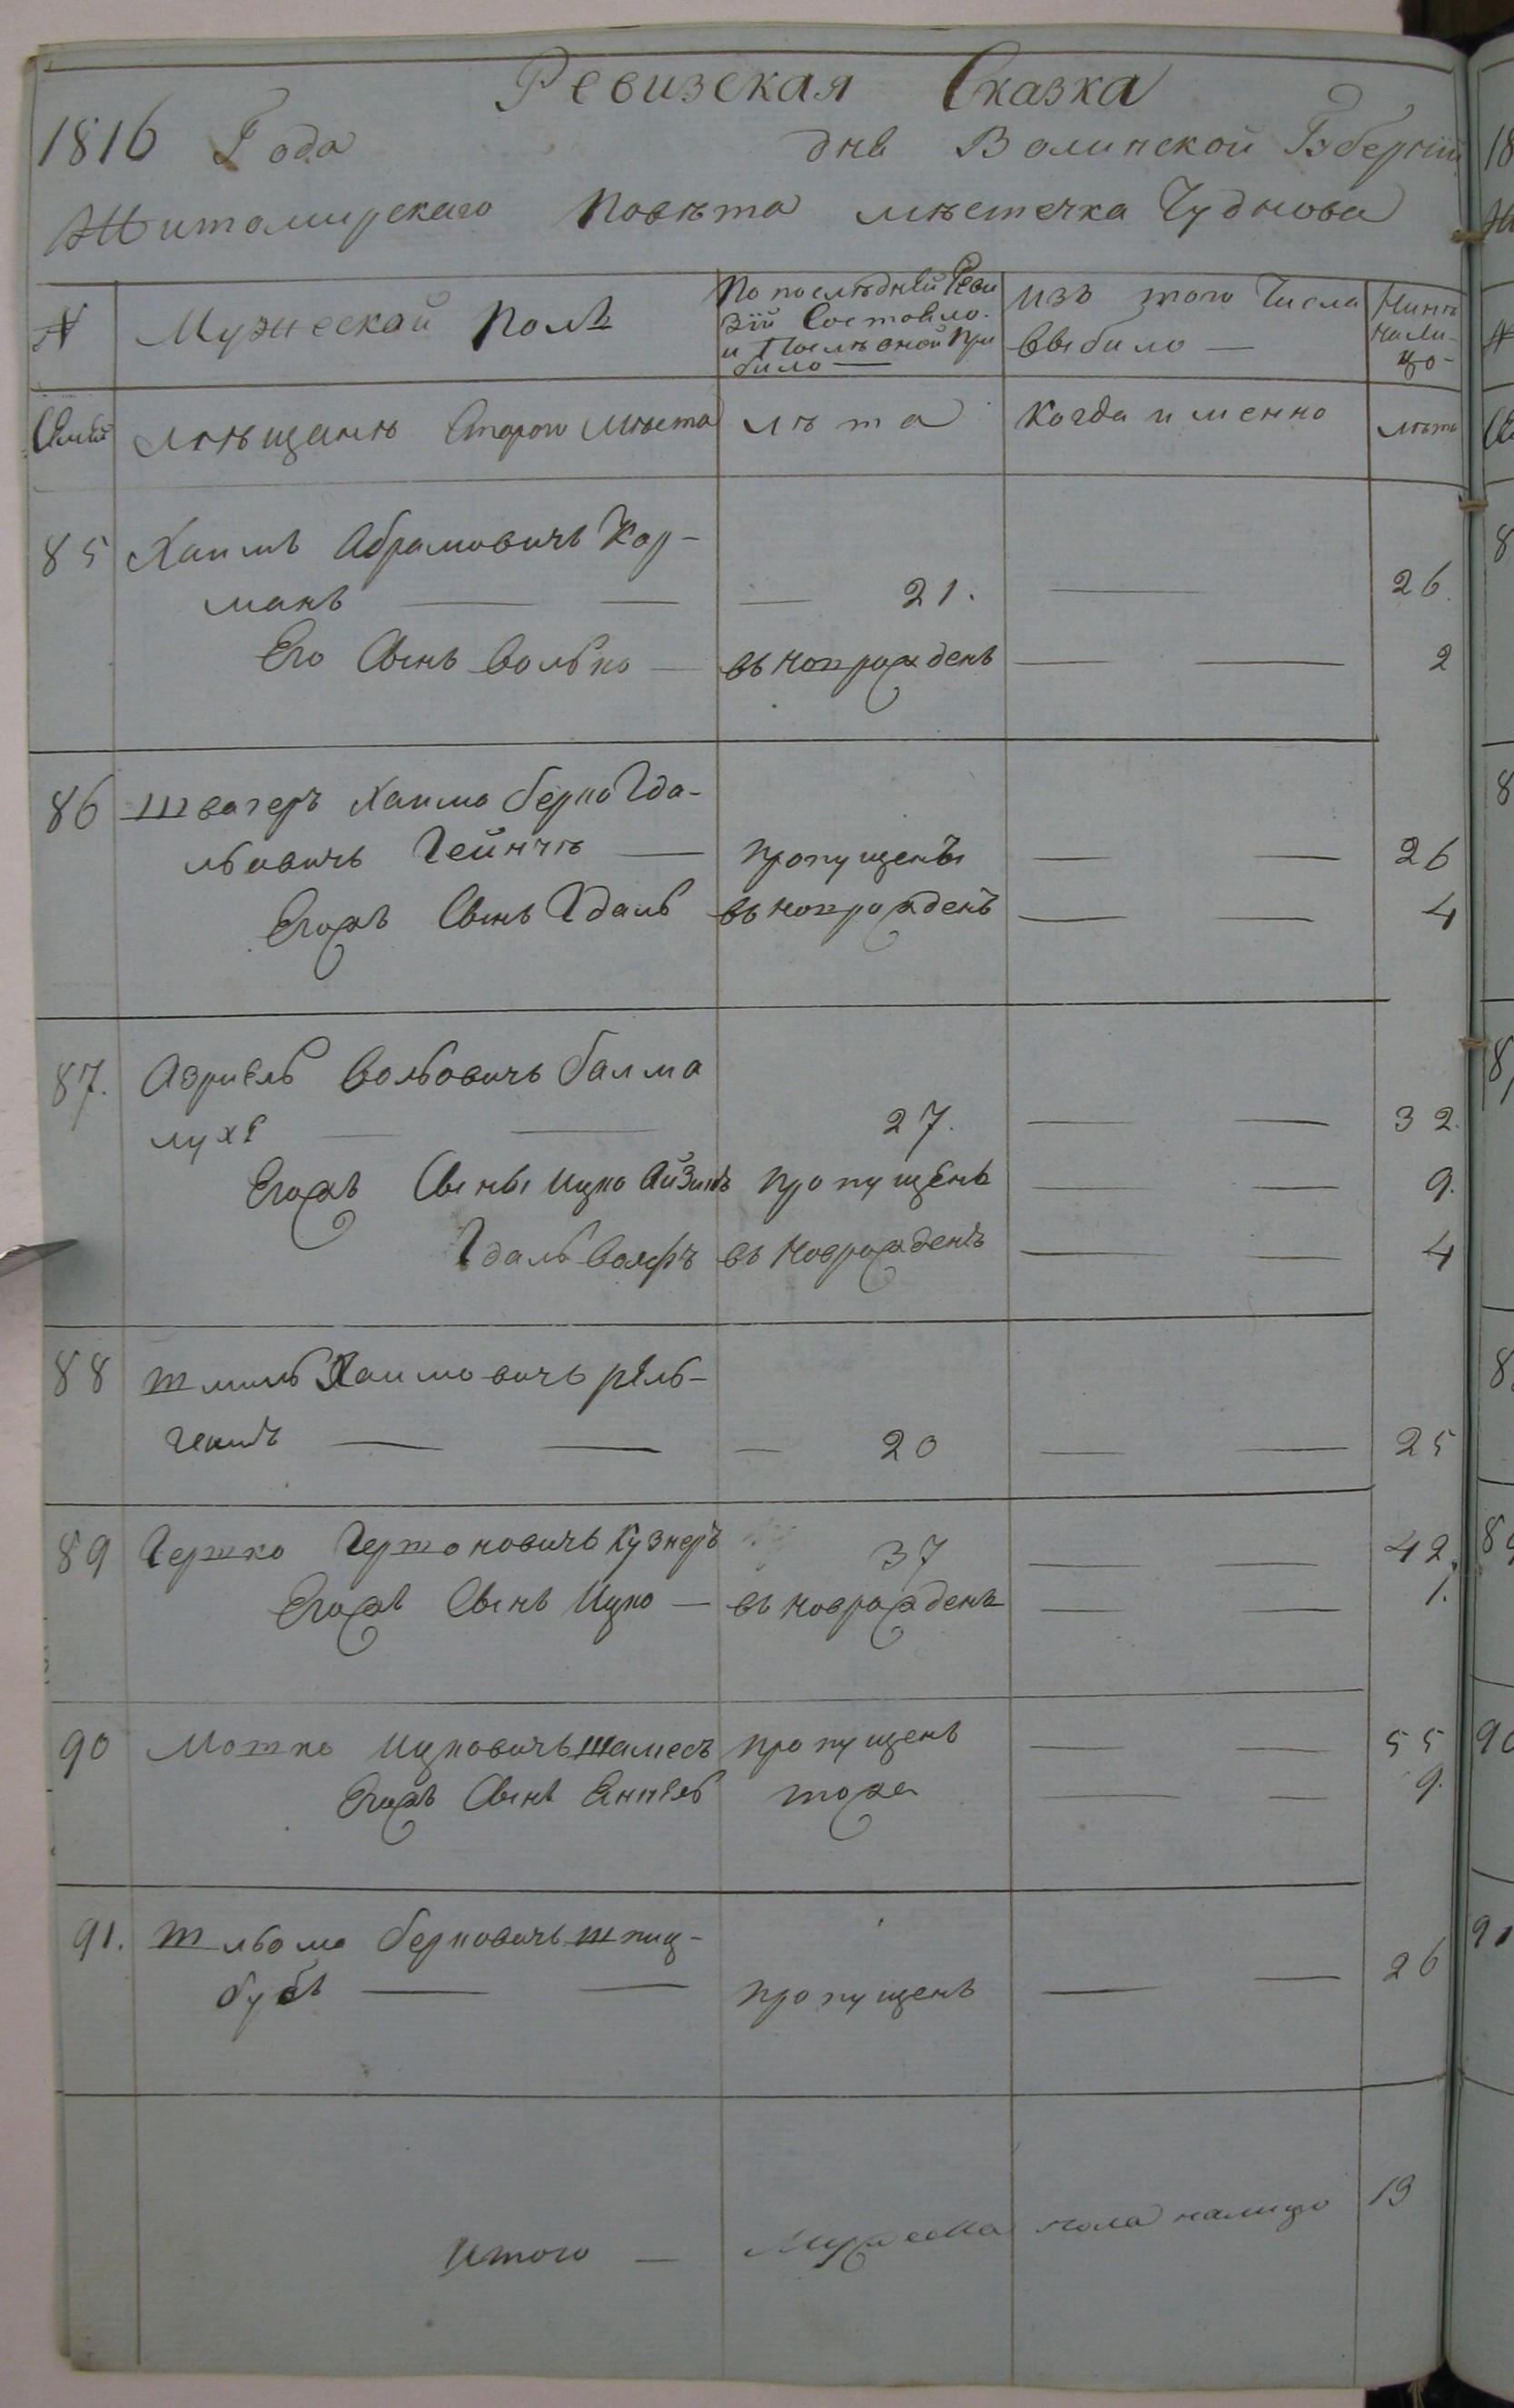 Ревизская Сказка
1816 Года дня Волинской Губернии
Житомирскаго Повѣта мѣстечка Чуднова
№ Мужескай Полъ По последней Реви Изъ того Числа Нинѣ
зіи Состояло выбило — нали-
и После оной при цо-
было —
Семьи мѣщанѣ Старого Мѣста лѣта Когда именно лѣта
85 Хаимъ Абрамовичъ Кор-
манъ — — — 21. — 26.
Его Сынъ Волько — въ новрожденъ — — 2
86 Швагеръ Хаима Берко Гда-
львичъ Гейнчѣ — пропущенъ — — 26
Егожъ Сынъ Гдаль въ новрожденъ — — 4
87. Азриель Вольовичъ Балма
лухъ — — 27. — — 32.
Егожъ Сыны Ицко Айзикъ пропущенъ — — 9.
Гдаль Волфъ въ новрожденъ — — 4
88 Шмиль Хаимовичъ
— — — 20 — — 25
89 Гершко Гершоновичъ Кузнеръ 37 — — 42.
Егожъ Сынъ Ицко — въ новрожденъ — — 1.
90 Мошко Ицковичъ Шамесъ пропущенъ — — 55
Егожъ Сынъ тоже — — 9.
91. Шльома Берковичъ Шпиц-
бубъ — — пропущенъ — — 26
Итого — Мужеска пола налицо 13